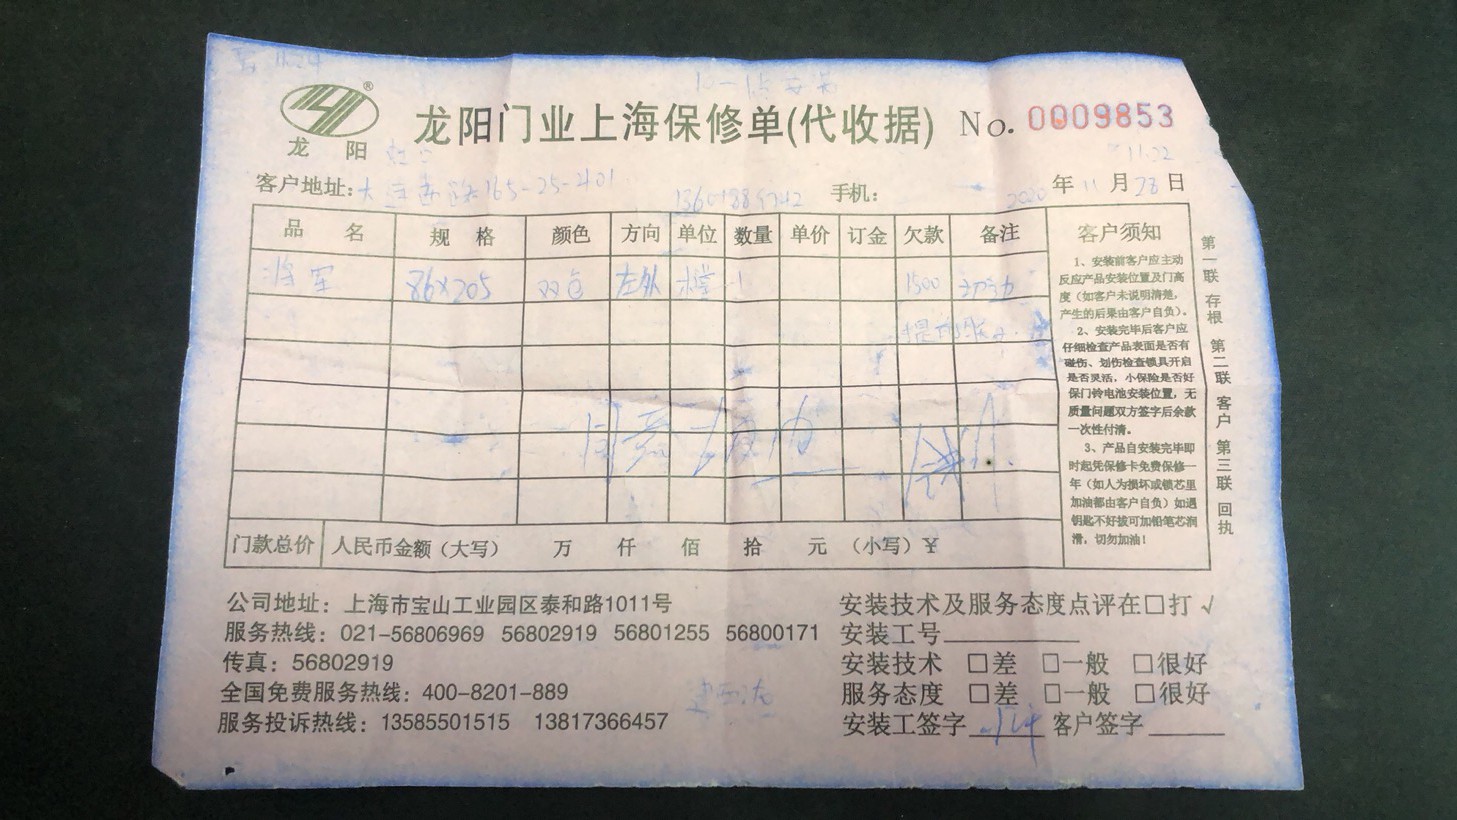 11.24
龙阳门业上海保修单(代收据) No. 0009853
®
龙 阳
11.22
客户地址: 165-25-401 手机: 2020年11月28日
品 名 规 格 颜色 方向 单位 数量 单价 订金 欠款 备注
将军 86×205 双色 左外 1 1500
门款总价 人民币金额(大写) 万 仟 佰 拾 元 (小写)¥
客户须知
1、安装前客户应主动
反应产品安装位置及门高
度(如客户未说明清楚,
产生的后果由客户自负)。
2、安装完毕后客户应
仔细检查产品表面是否有
碰伤、划伤检查锁具开启
是否灵活,小保险是否好
保门铃电池安装位置,无
质量问题双方签字后余款
一次性付清。
3、产品自安装完毕即
时起凭保修卡免费保修一
年(如人为损坏或锁芯里
加油都由客户自负)如遇
钥匙不好拔可加铅笔芯润
滑,切勿加油!
第一联 存根 第二联 客户 第三联 回执
公司地址:上海市宝山工业园区泰和路1011号
服务热线:021-56806969 56802919 56801255 56800171
传真:56802919
全国免费服务热线:400-8201-889
服务投诉热线:13585501515 13817366457
安装技术及服务态度点评在□打√
安装工号
安装技术 □差 □一般 □很好
服务态度 □差 □一般 □很好
安装工签字 客户签字